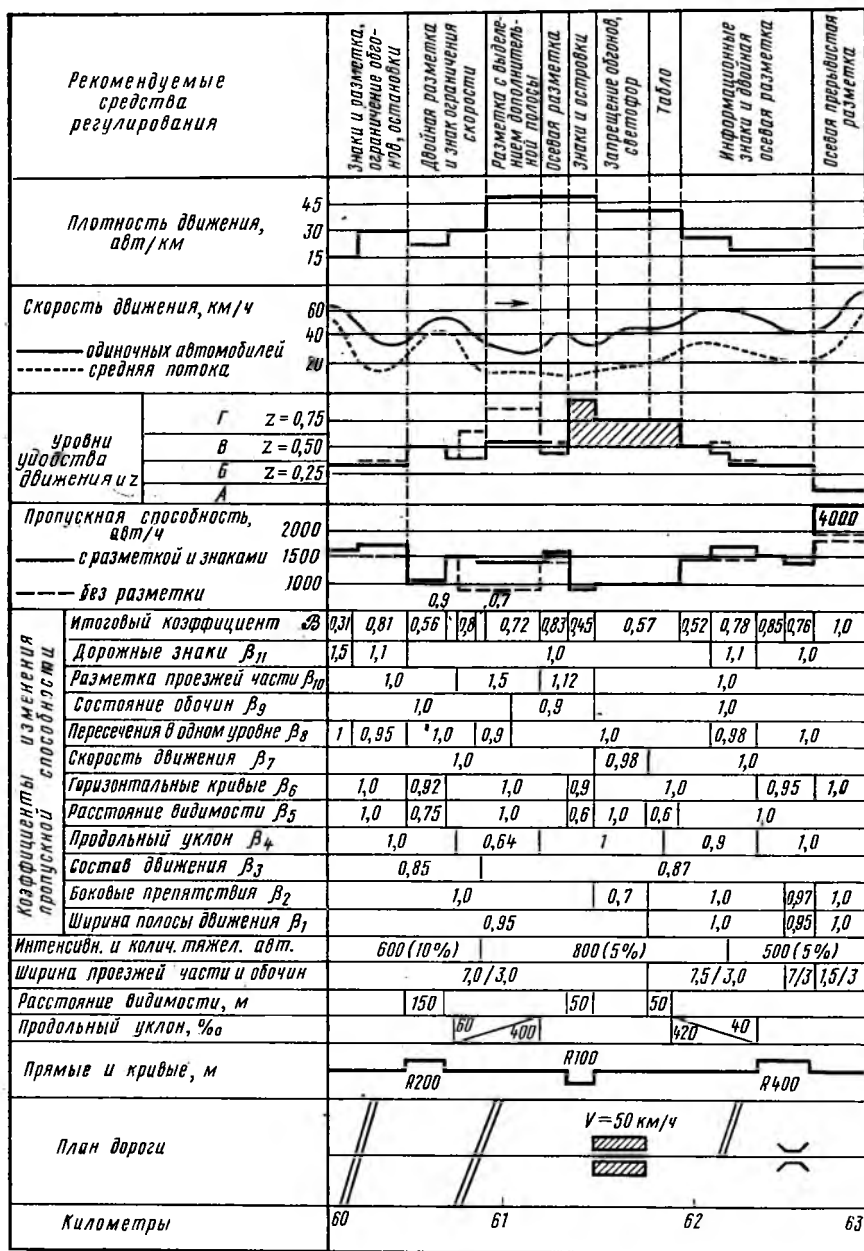 Рекомендуемые
средства
регулирования
Знаки и разметка,
ограничение обго-
нов, остановки
Двойная разметка
и знак ограничения
скорости
Разметка с выделе-
нием дополнитель-
ной полосы
Осевая разметка
Знаки и островки
Запрещение обгонов,
светофор
Табло
Информационные
знаки и двойная
осевая разметка
Осевая прерывистая
разметка
Плотность движения,
авт/км
45
30
15
Скорость движения, км/ч
60
40
20
одиночных автомобилей
средняя потока
уровни
удобства
движения и z
Г z=0,75
В z=0,50
Б z=0,25
А
Пропускная способность,
авт/ч
2000
1500
1000
4000
с разметкой и знаками
без разметки
0,9 0,7
Коэффициенты изменения
пропускной способности
Итоговый коэффициент В 0,31 0,81 0,56 0,8 0,72 0,83 0,45 0,57 0,52 0,78 0,85 0,76 1,0
Дорожные знаки β11 1,5 1,1 1,0 1,1 1,0
Разметка проезжей части β10 1,0 1,5 1,12 1,0
Состояние обочин β9 1,0 0,9 1,0
Пересечения в одном уровне β8 1 0,95 1,0 0,9 1,0 0,98 1,0
Скорость движения β7 1,0 0,98 1,0
Горизонтальные кривые β6 1,0 0,92 1,0 0,9 1,0 0,95 1,0
Расстояние видимости β5 1,0 0,75 1,0 0,6 1,0 0,6 1,0
Продольный уклон β4 1,0 0,64 1 0,9 1,0
Состав движения β3 0,85 0,87
Боковые препятствия β2 1,0 0,7 1,0 0,97 1,0
Ширина полосы движения β1 0,95 1,0 0,95 1,0
Интенсивн. и колич. тяжел. авт. 600 (10%) 800 (5%) 500 (5%)
Ширина проезжей части и обочин 7,0/3,0 7,5/3,0 7/3 7,5/3
Расстояние видимости, м 150 50 50
Продольный уклон, ‰ 60 400 420 40
Прямые и кривые, м R200 R100 R400
План дороги V=50 км/ч
Километры 60 61 62 63